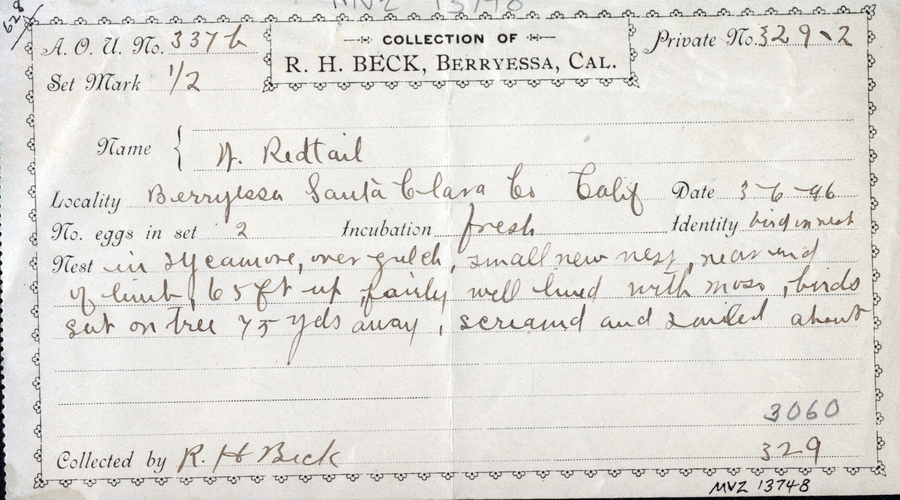 628
MVZ 13748
A. O. U. No. 337b
COLLECTION OF
R. H. BECK, BERRYESSA, CAL.
Private No. 329-2
Set Mark 1/2
Name { W. Redtail
Locality Berryessa Santa Clara Co Calif Date 3-6-96
No. eggs in set 2 Incubation fresh Identity bird on nest
Nest in sycamore, over gulch, small new nest, near end
of limb, 65 ft up, fairly well lined with moss, birds
sat on tree 75 yds away, screamd and sailed about
3060
329
Collected by R. H. Beck
MVZ 13748